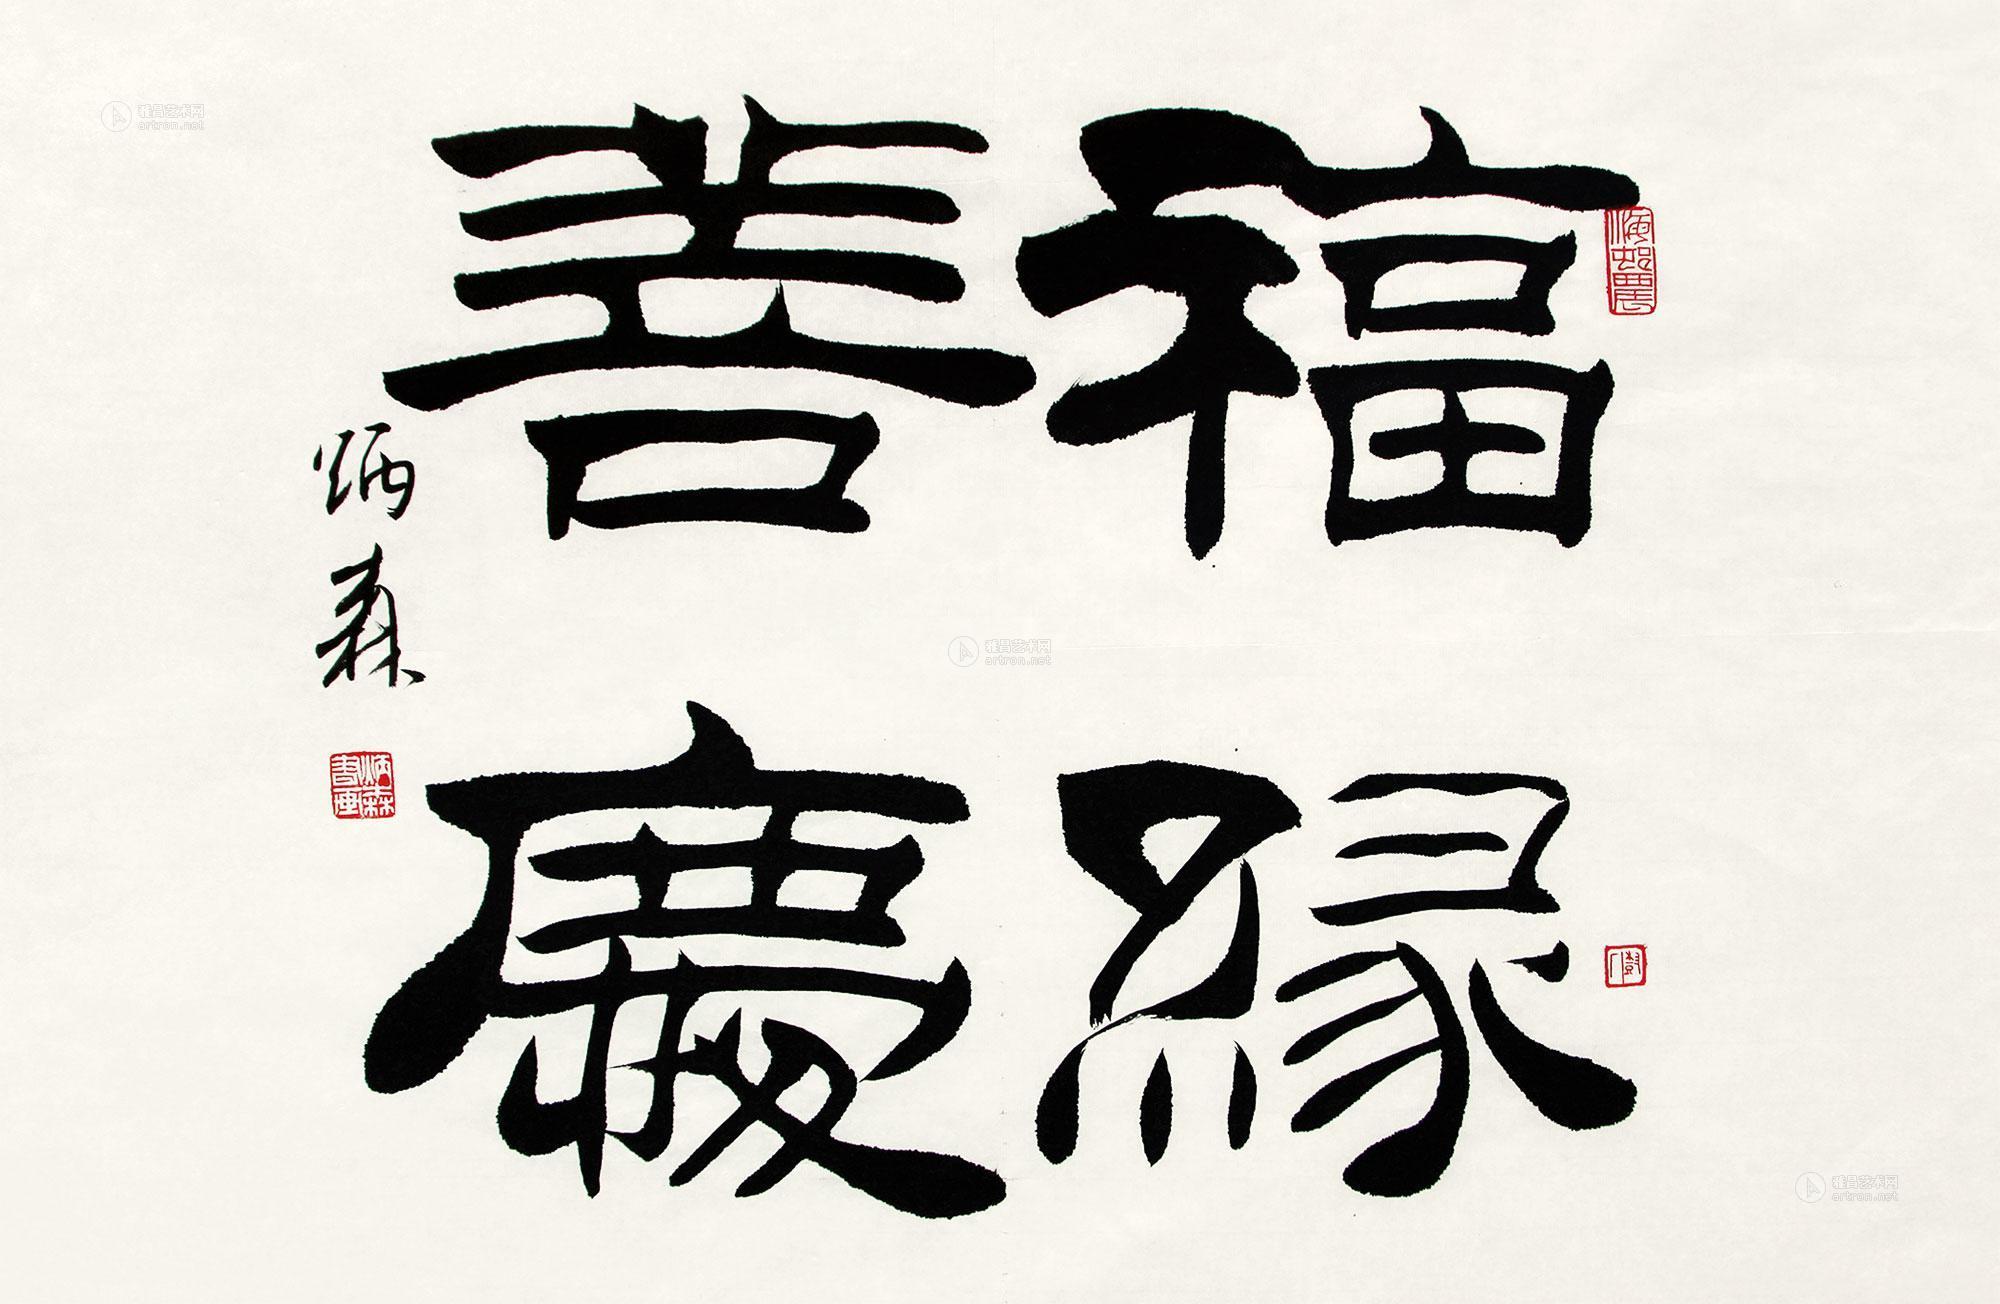 福缘
善慶
炳森
炳森書画
雅昌艺术网
artron.net
雅昌艺术网
artron.net
雅昌艺术网
artron.net